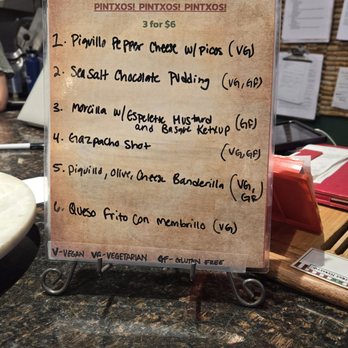 PINTXOS! PINTXOS! PINTXOS!
3 for $6
1. Piquillo Pepper Cheese w/picos (VG)
2. Sea Salt Chocolate Pudding (VG, GF)
3. Morcilla w/Espelette Mustard
and Basque Ketchup (GF)
4. Gazpacho Shot (VG, GF)
5. Piquillo, Olive, Cheese Banderilla (VG,
GF)
6. Queso Frito con Membrillo (VG)
V-VEGAN VG-VEGETARIAN GF-GLUTEN FREE